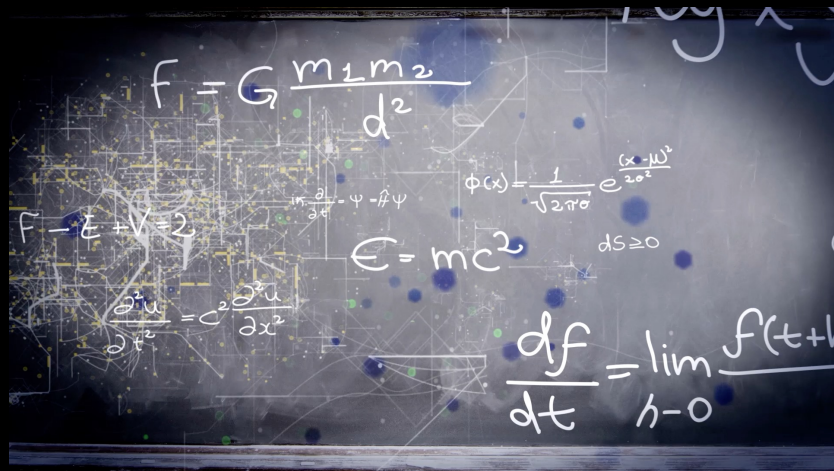 log x
F = G m1m2/d²
ϕ(x) = 1/√2πσ e^(x-μ)²/2σ²
F - E + V = 2
E = mc²
dS ≥ 0
∂²u/∂t² = c² ∂²u/∂x²
df/dt = lim h-0 f(t+h